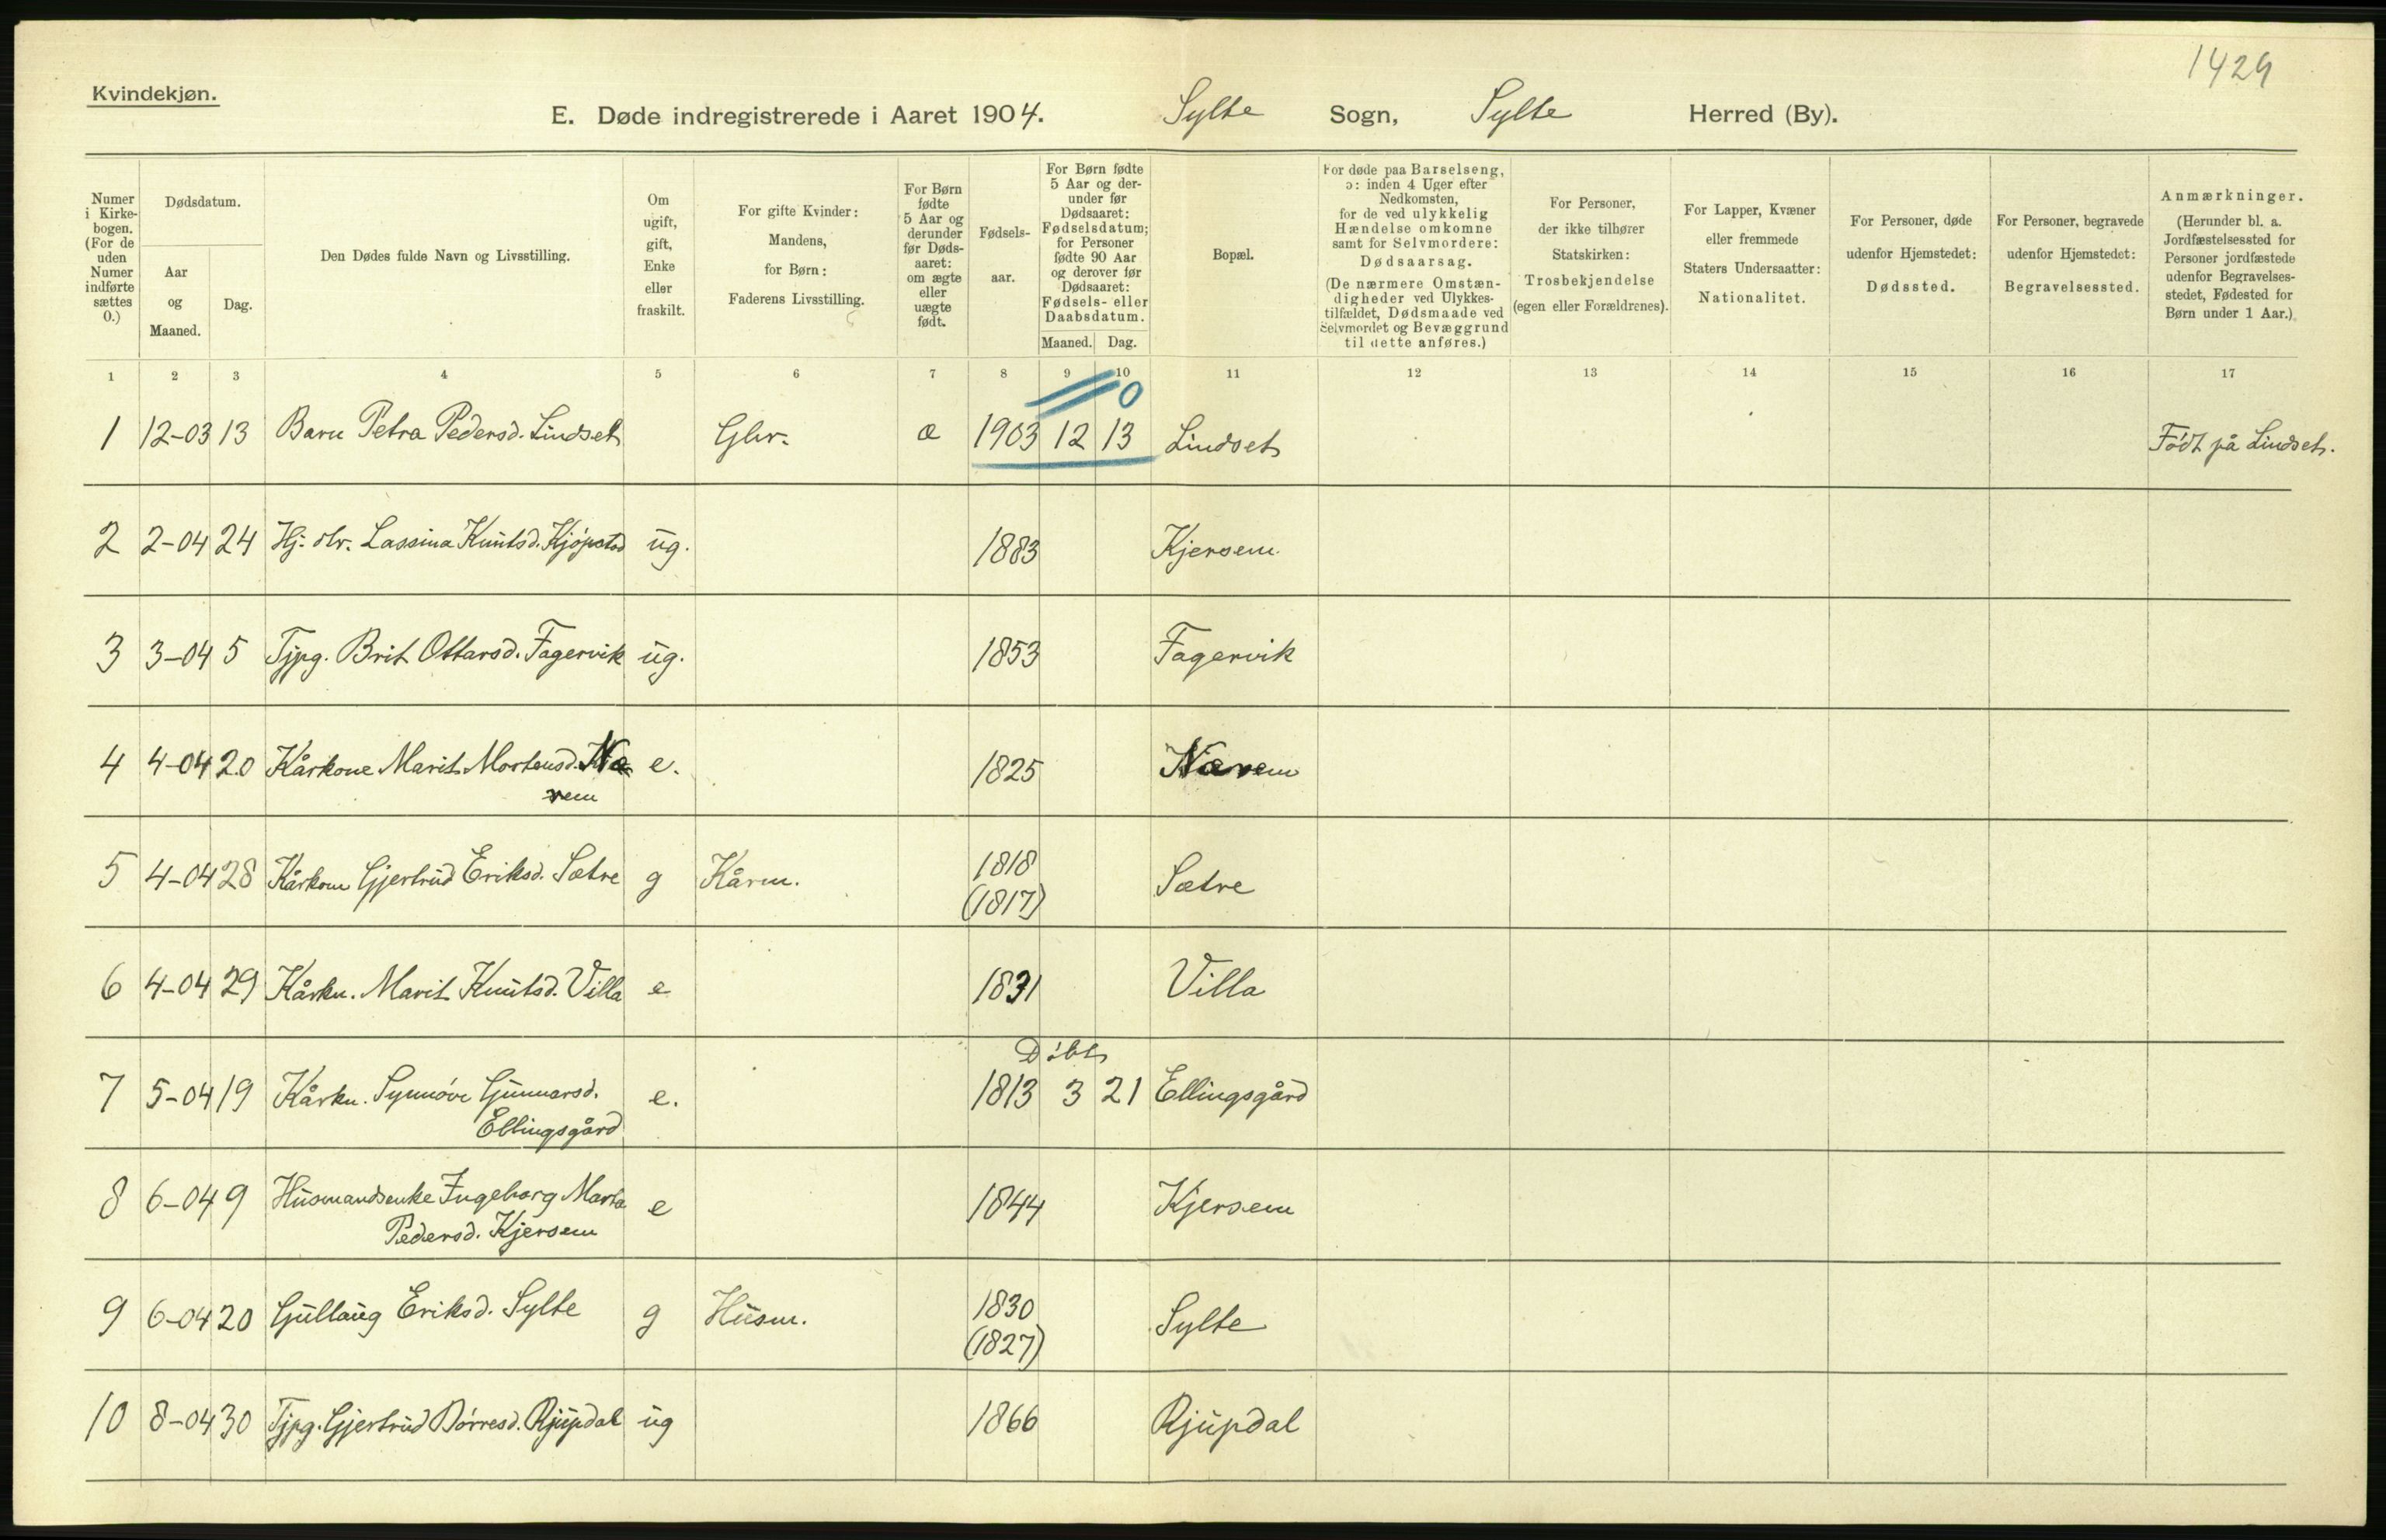 1429
Kvindekjøn.
E. Døde indregistrerede i Aaret 1904. Sylte Sogn, Sylte Herred (By).
Numer i Kirkebogen. (For de uden Numer indførte sættes 0.)
Dødsdatum.
Aar og Maaned.
Dag.
Den Dødes fulde Navn og Livsstilling.
Om ugift, gift, Enke eller fraskilt.
For gifte Kvinder: Mandens, for Børn: Faderens Livsstilling.
For Børn fødte 5 Aar og derunder før Dødsaaret: om ægte eller uægte født.
Fødselsaar.
For Børn fødte 5 Aar og derunder før Dødsaaret: Fødselsdatum; for Personer fødte 90 Aar og derover før Dødsaaret: Fødsels- eller Daabsdatum.
Maaned. Dag.
Bopæl.
For døde paa Barselseng, ɔ: inden 4 Uger efter Nedkomsten, for de ved ulykkelig Hændelse omkomne samt for Selvmordere: Dødsaarsag.
(De nærmere Omstændigheder ved Ulykkestilfældet, Dødsmaade ved Selvmordet og Bevæggrund til dette anføres.)
For Personer, der ikke tilhører Statskirken: Trosbekjendelse (egen eller Forældrenes).
For Lapper, Kvæner eller fremmede Staters Undersaatter: Nationalitet.
For Personer, døde udenfor Hjemstedet: Dødssted.
For Personer, begravede udenfor Hjemstedet: Begravelsessted.
Anmærkninger.
(Herunder bl. a. Jordfæstelsessted for Personer jordfæstede udenfor Begravelsesstedet, Fødested for Børn under 1 Aar.)
1 2 3 4 5 6 7 8 9 10 11 12 13 14 15 16 17
0
1 12-03 13 Barn Petra Pedersd. Lindset Gbr. æ 1903 12 13 Lindset Født på Lindset.
2 2-04 24 Lassina Knutsd. Kjøpstad ug. 1883 Kjersem
3 3-04 5 Tjpg. Brit Ottarsd. Fagervik ug. 1853 Fagervik
4 4-04 20 Kårkone Marit Mortensd. Næ e. 1825 Nærem
rem
5 4-04 28 Kårkone Gjertrud Eriksd. Sætre g Kårm. 1818 Sætre
(1817)
6 4-04 29 Kårkn. Marit Knutsd. Villa e 1831 Villa
Døbt
7 5-04 19 Kårkn. Synnøve Gunnarsd. e. 1813 3 21 Ellingsgård
Ellingsgård
8 6-04 9 Husmandsenke Ingeborg Marta e 1844 Kjersem
Pedersd. Kjersem
9 6-04 20 Gullaug Eriksd. Sylte g Husm. 1830 Sylte
(1827)
10 8-04 30 Tjpg. Gjertrud Børresd. Rjupdal ug 1866 Rjupdal